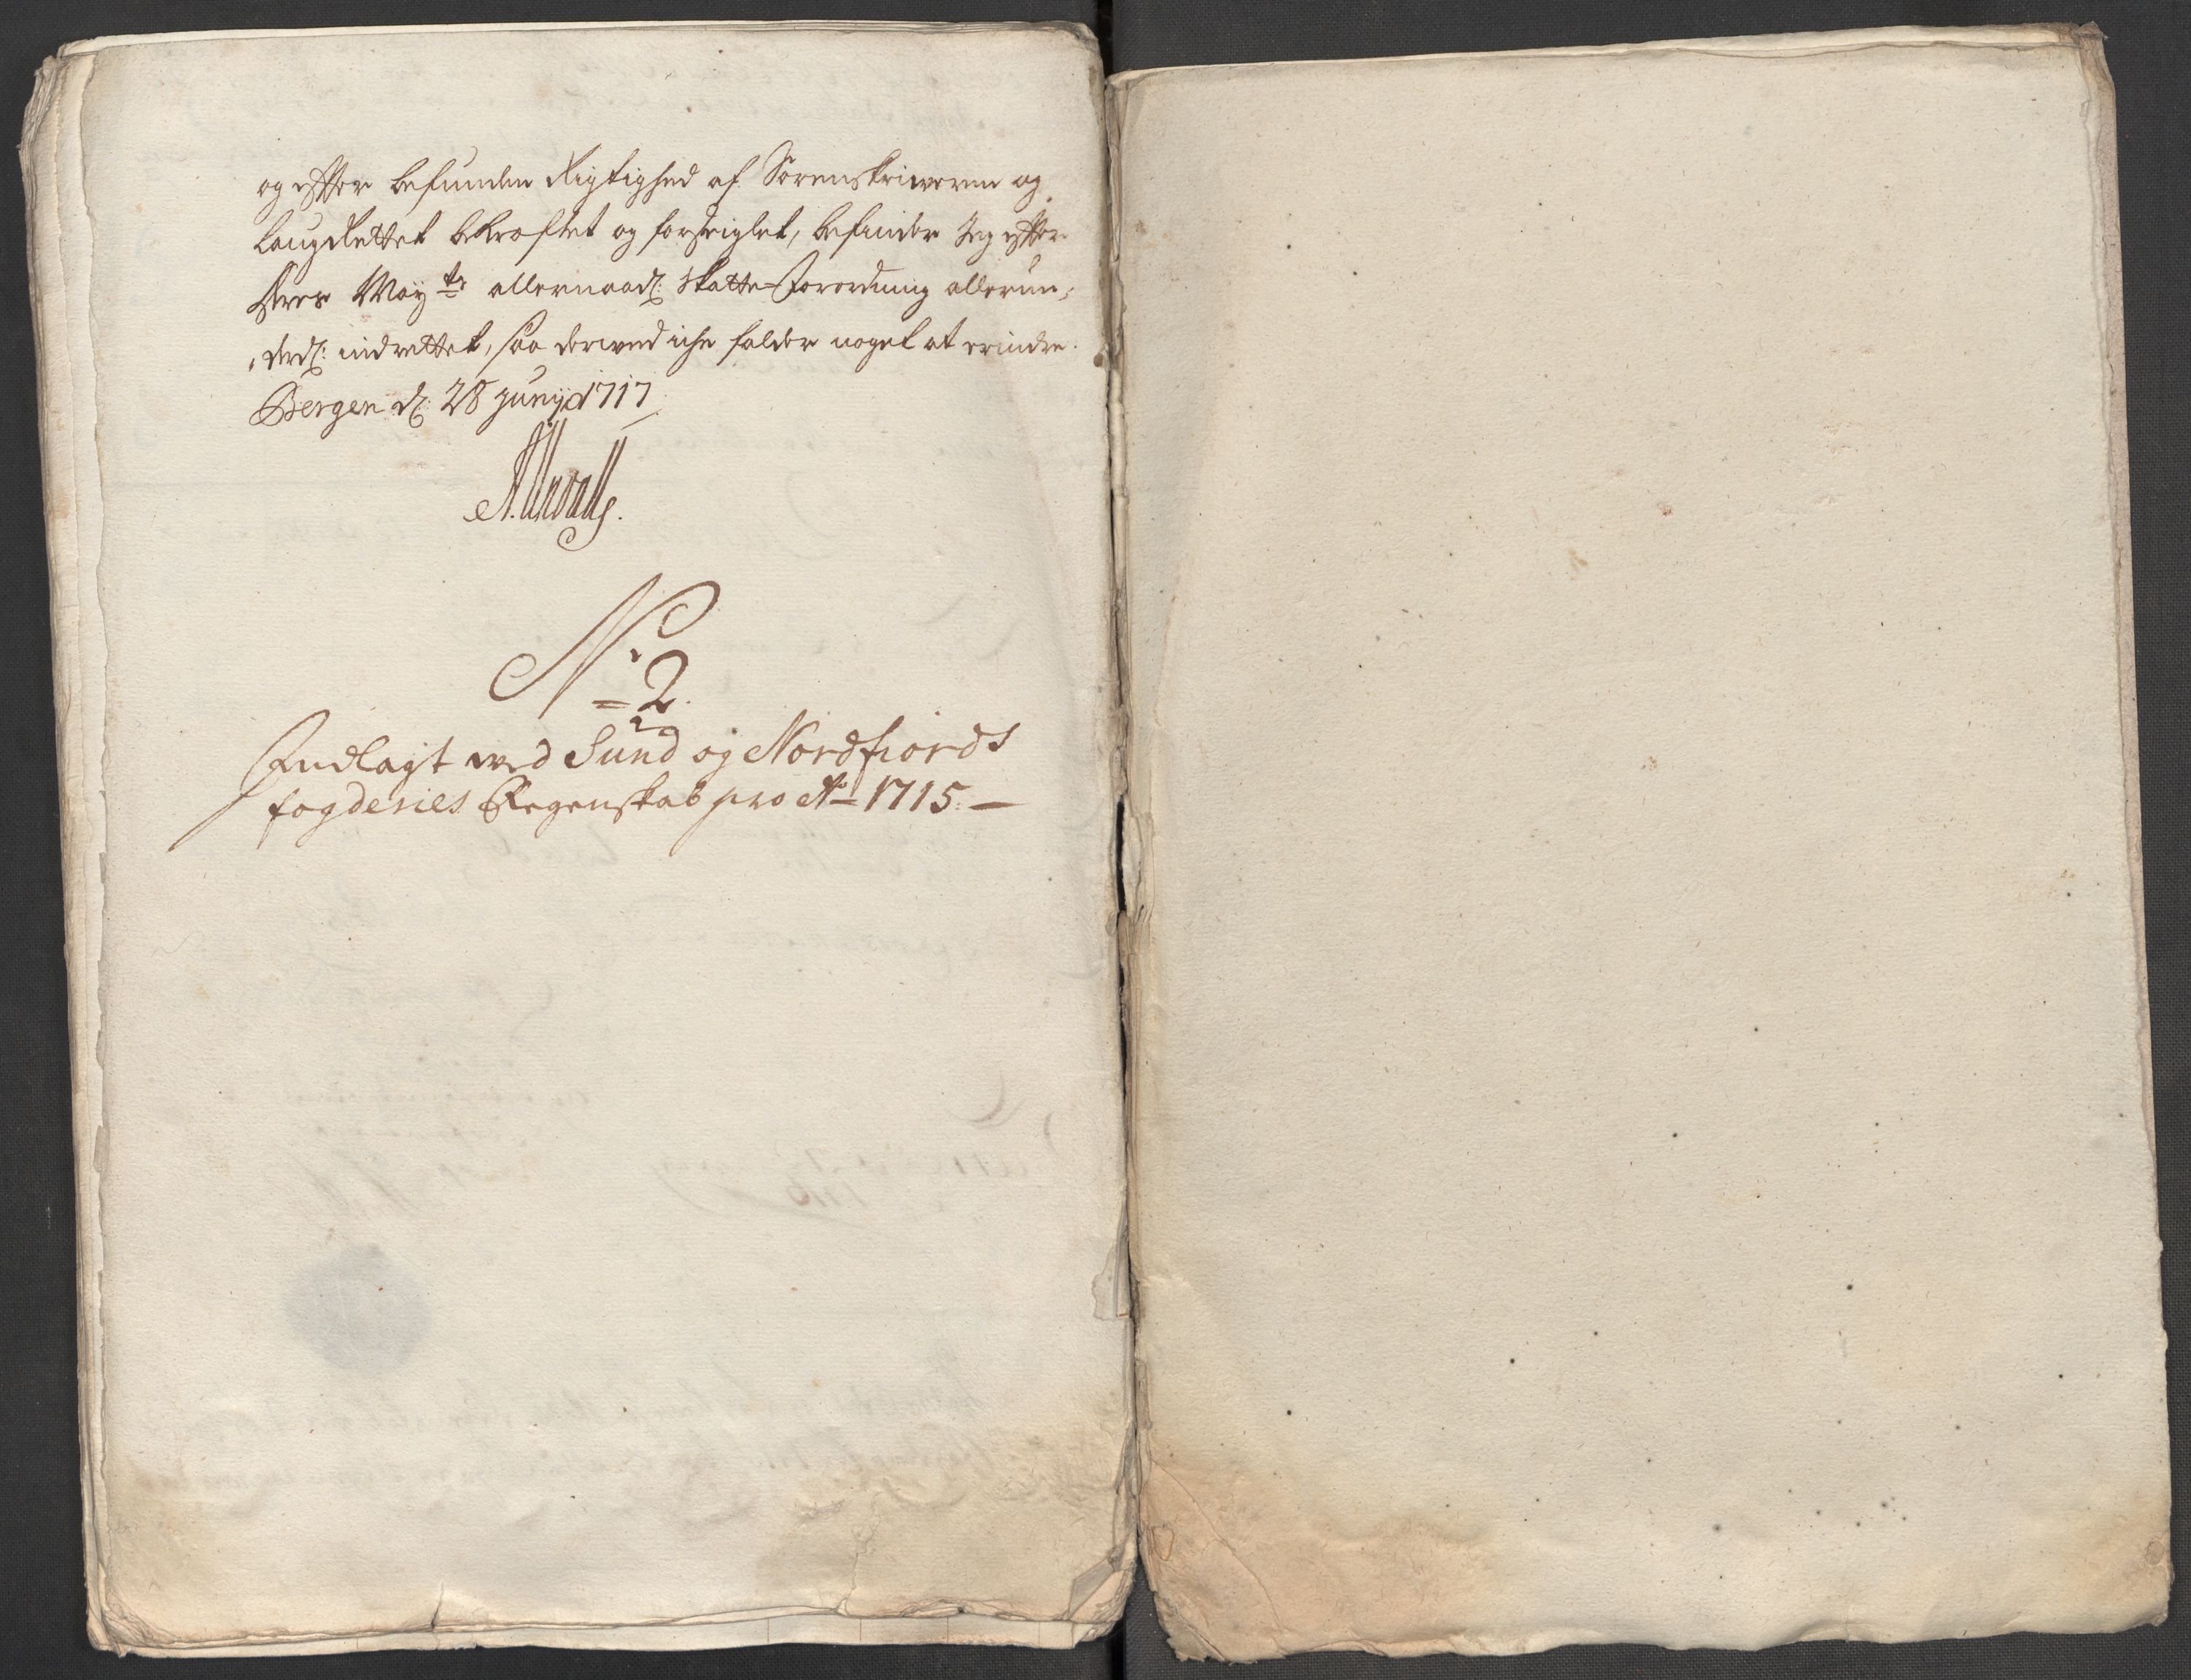 og effter befunden Rigtighed af Sorenskriweren og
LaugRettet bekrefftet og forseiglet, befinder Jeg effter
Deres May.ts allernaad: Skatte=Forordning allerun,,
,,derd: indrettet, saa derwed iche falder noget at erindre.
Bergen d: 28 Junij 1717
N.
=2.
Indlagt wed Sund og Nordfiords
fogderies Regenskab pro Ao 1715. —